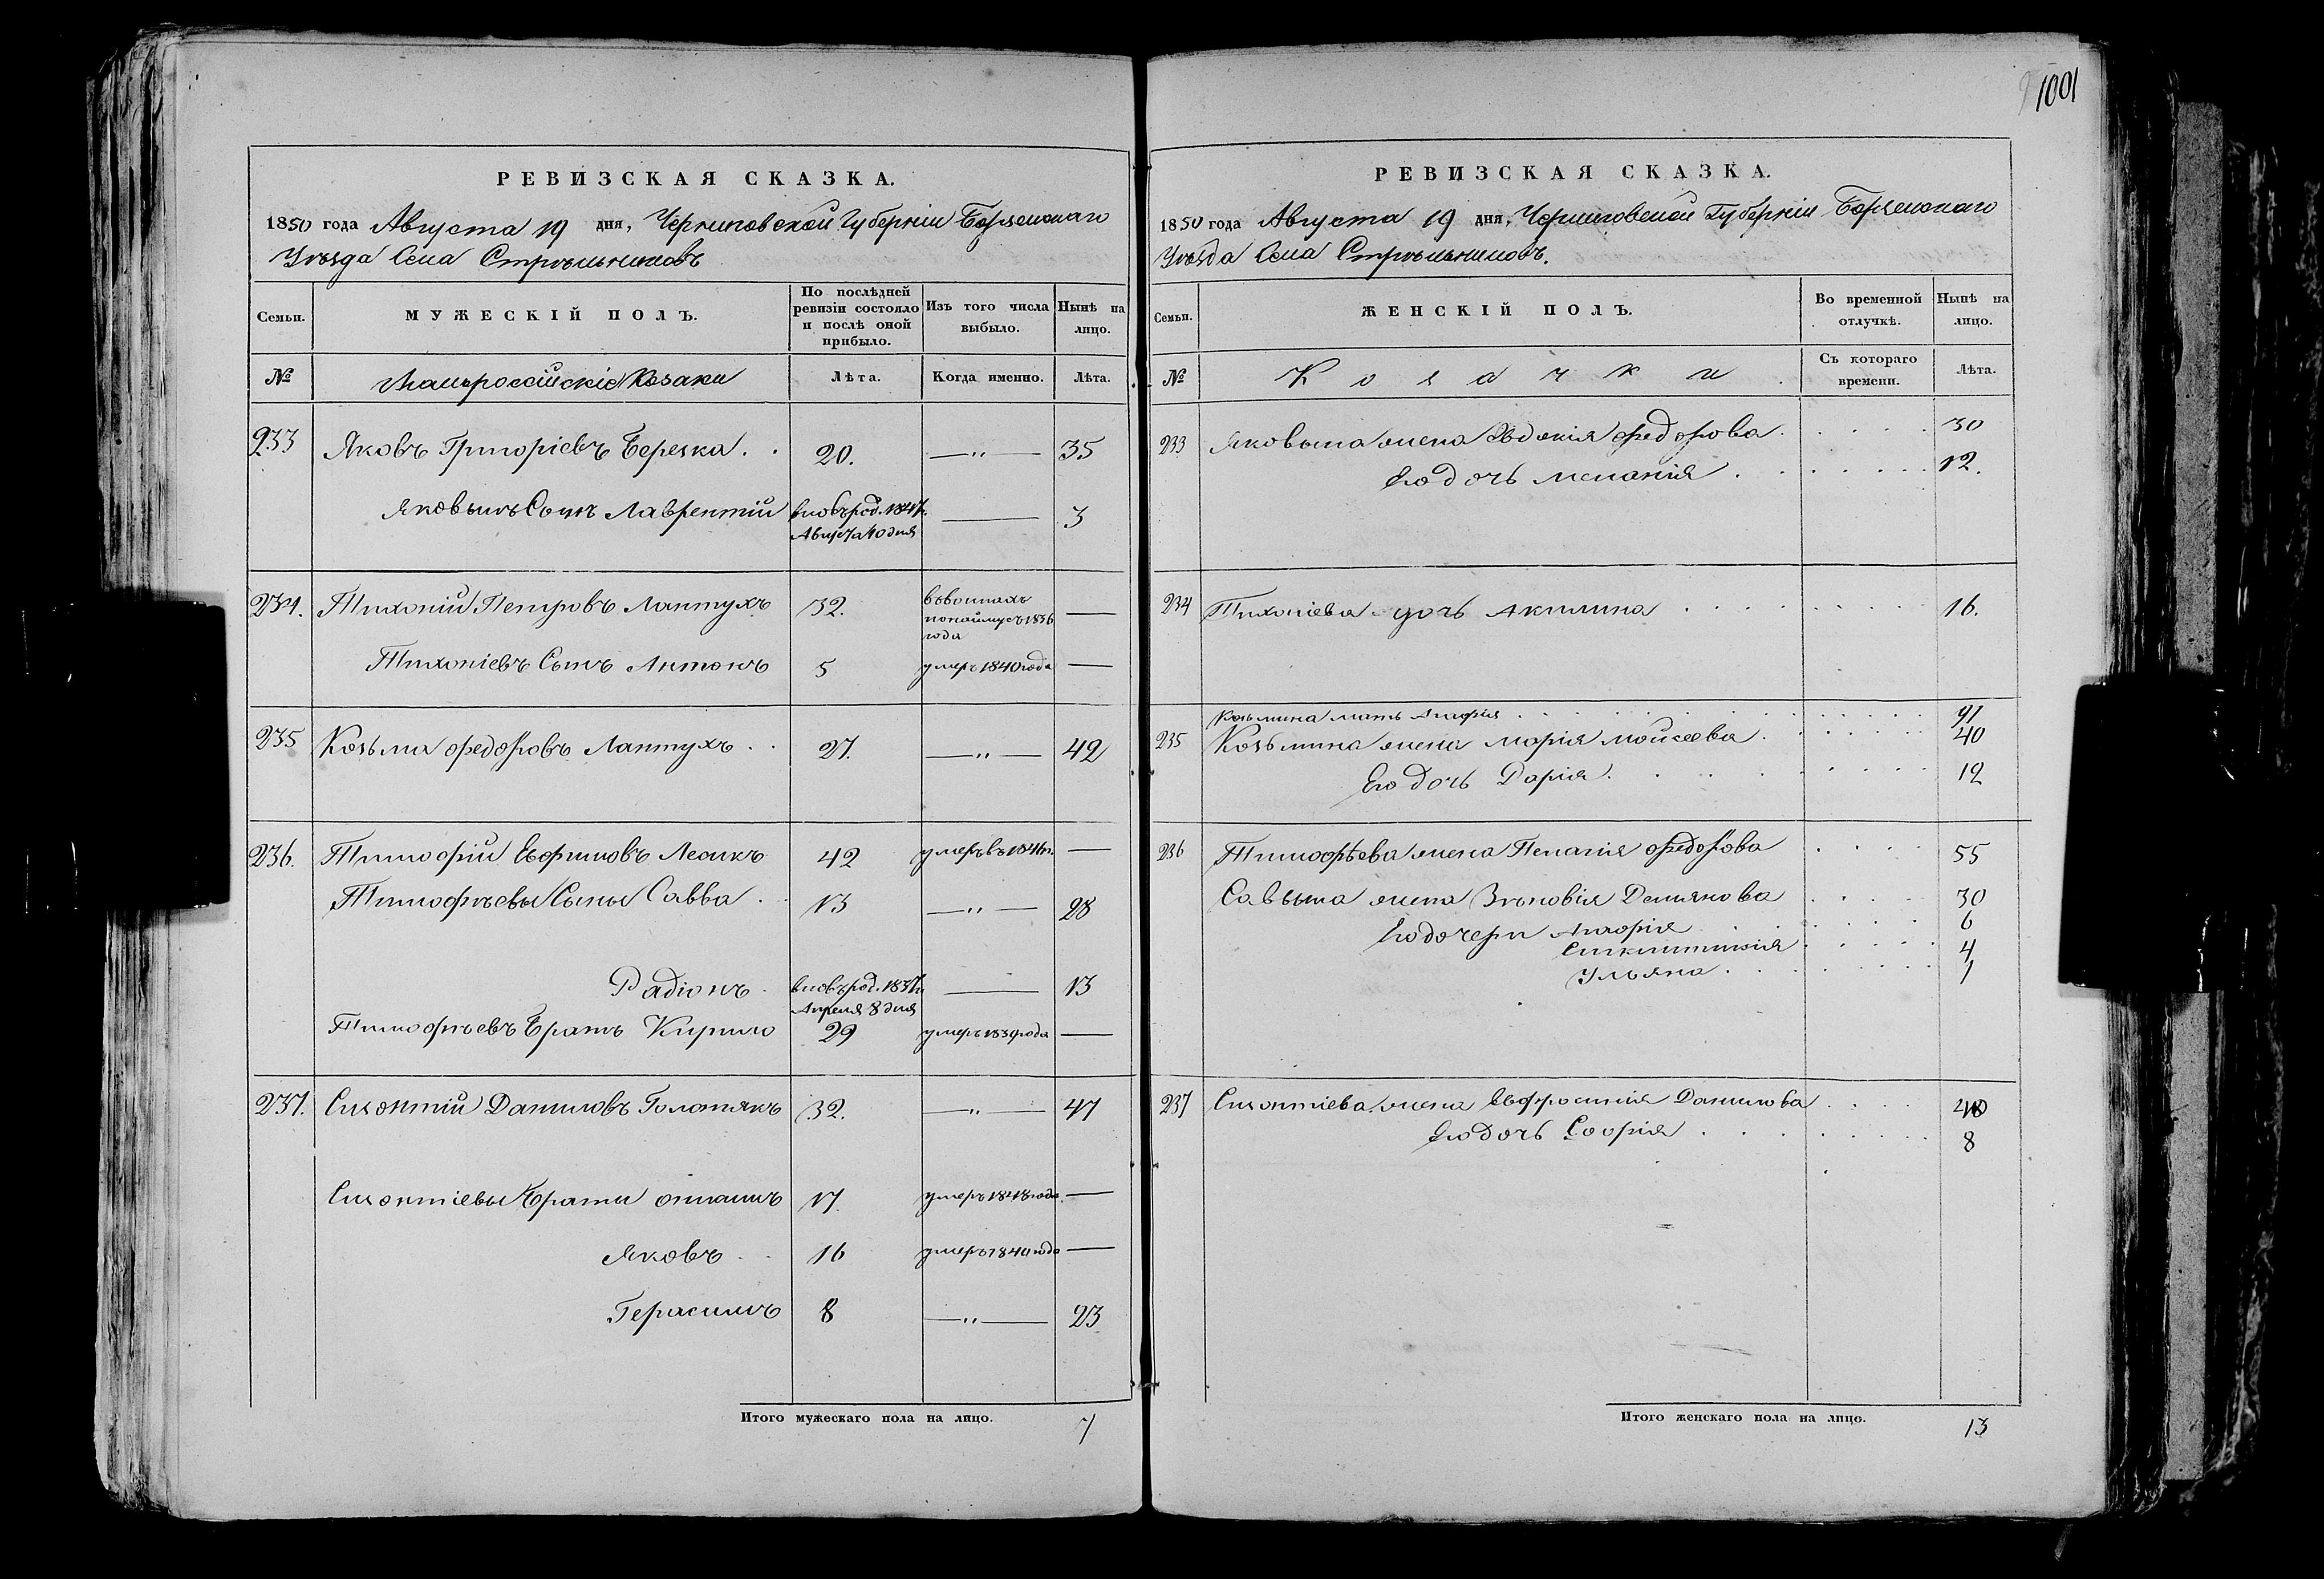 1001
РЕВИЗСКАЯ СКАЗКА.
1850 года Августа 19 дня, Черниговской Губерніи Борзенскаго
Уѣзда Села Стрѣльниковъ
Семьи.
МУЖЕСКІЙ ПОЛЪ.
По послѣдней ревизіи состояло и послѣ оной прибыло.
Изъ того числа выбыло.
Нынѣ на лицо.
№ Малороссійскіе Козаки Лѣта. Когда именно. Лѣта.
233 Яковъ Григоріевъ Березка . . 20. —"— 35
Яковымъ Сынъ Лаврентій вновь род. 1847 г. Августа 10 дня — 3
234. Тихоній Петровъ Лантухъ 32. въ воинахъ по найму съ 1836 года —
Тихоніевъ Сынъ Антонъ 5 умеръ 1840 года —
235 Козьма Федоровъ Лантухъ . . 27. —"— 42
236. Тимофій Ефимовъ Лесикъ 42 умеръ въ 1846 г. —
Тимофѣевы Сыны Савва . . 13 —"— 28
Радіонъ вновь род. 1837 г. Апреля 8 дня — 13
Тимофѣевъ Братъ Кирило 29 умеръ 1839 года —
237. Силянтій Даниловъ 32. —"— 47
17. умеръ 1848 года —
Яковъ . . 16 умеръ 1840 года —
Герасимъ 8 —"— 23
Итого мужескаго пола на лицо. 7
РЕВИЗСКАЯ СКАЗКА.
1850 года Августа 19 дня, Черниговской Губерніи Борзенскаго
Уѣзда Села Стрѣльниковъ.
Семьи.
ЖЕНСКІЙ ПОЛЪ.
Во временной отлучкѣ.
Нынѣ на лицо.
№ Козачки . Съ котораго времени. Лѣта.
233 Яковыма жена Евдокія Федорова . . . . . 30
Его дочь Меланія . . . . . . . 12.
234 Тихоніева дочь Акилина . . . . . . . . 16.
Козьмина мать Агафія . . . . . . . . . . 91
235 Козьмина жена Марія Мойсеева . . . . . . 40
Его дочь Дарія . . . . . . . . 12
236 Тимофѣева жена Пелагія Федорова . . . . 55
Саввыма жена Зѣновія Демянова . . . . 30
Его дочери Агафія . . . . . . 6
4
Ульяна . . . . . . . 1
237 жена Евфросинія Данилова . . . . 40
Его дочь Софія . . . . . . . 8
Итого женскаго пола на лицо. 13